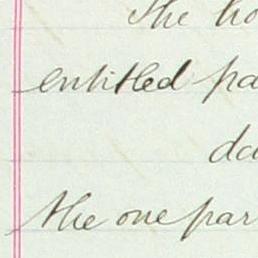 The ho
entitled pa
da
the one par